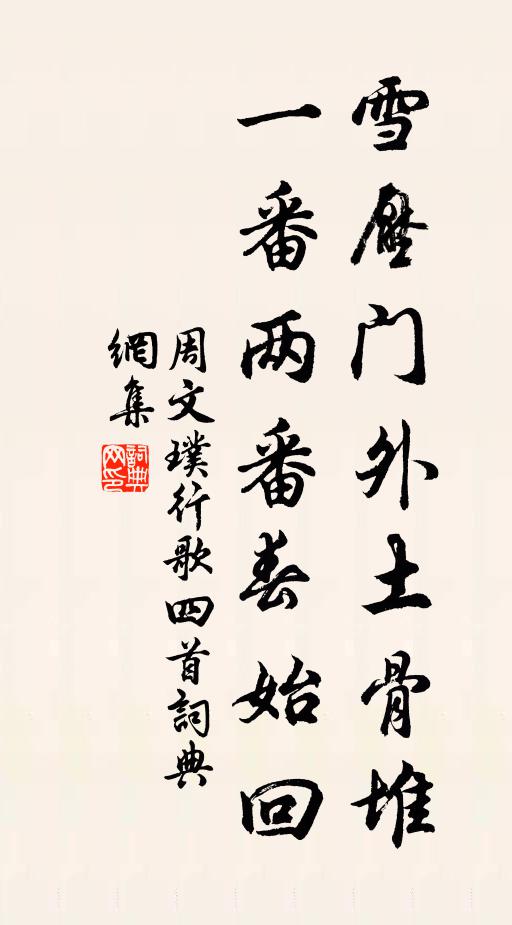 雪壓門外土骨堆
一番两番春始回
周文璞行歌四首詞典
網集
詞典网印